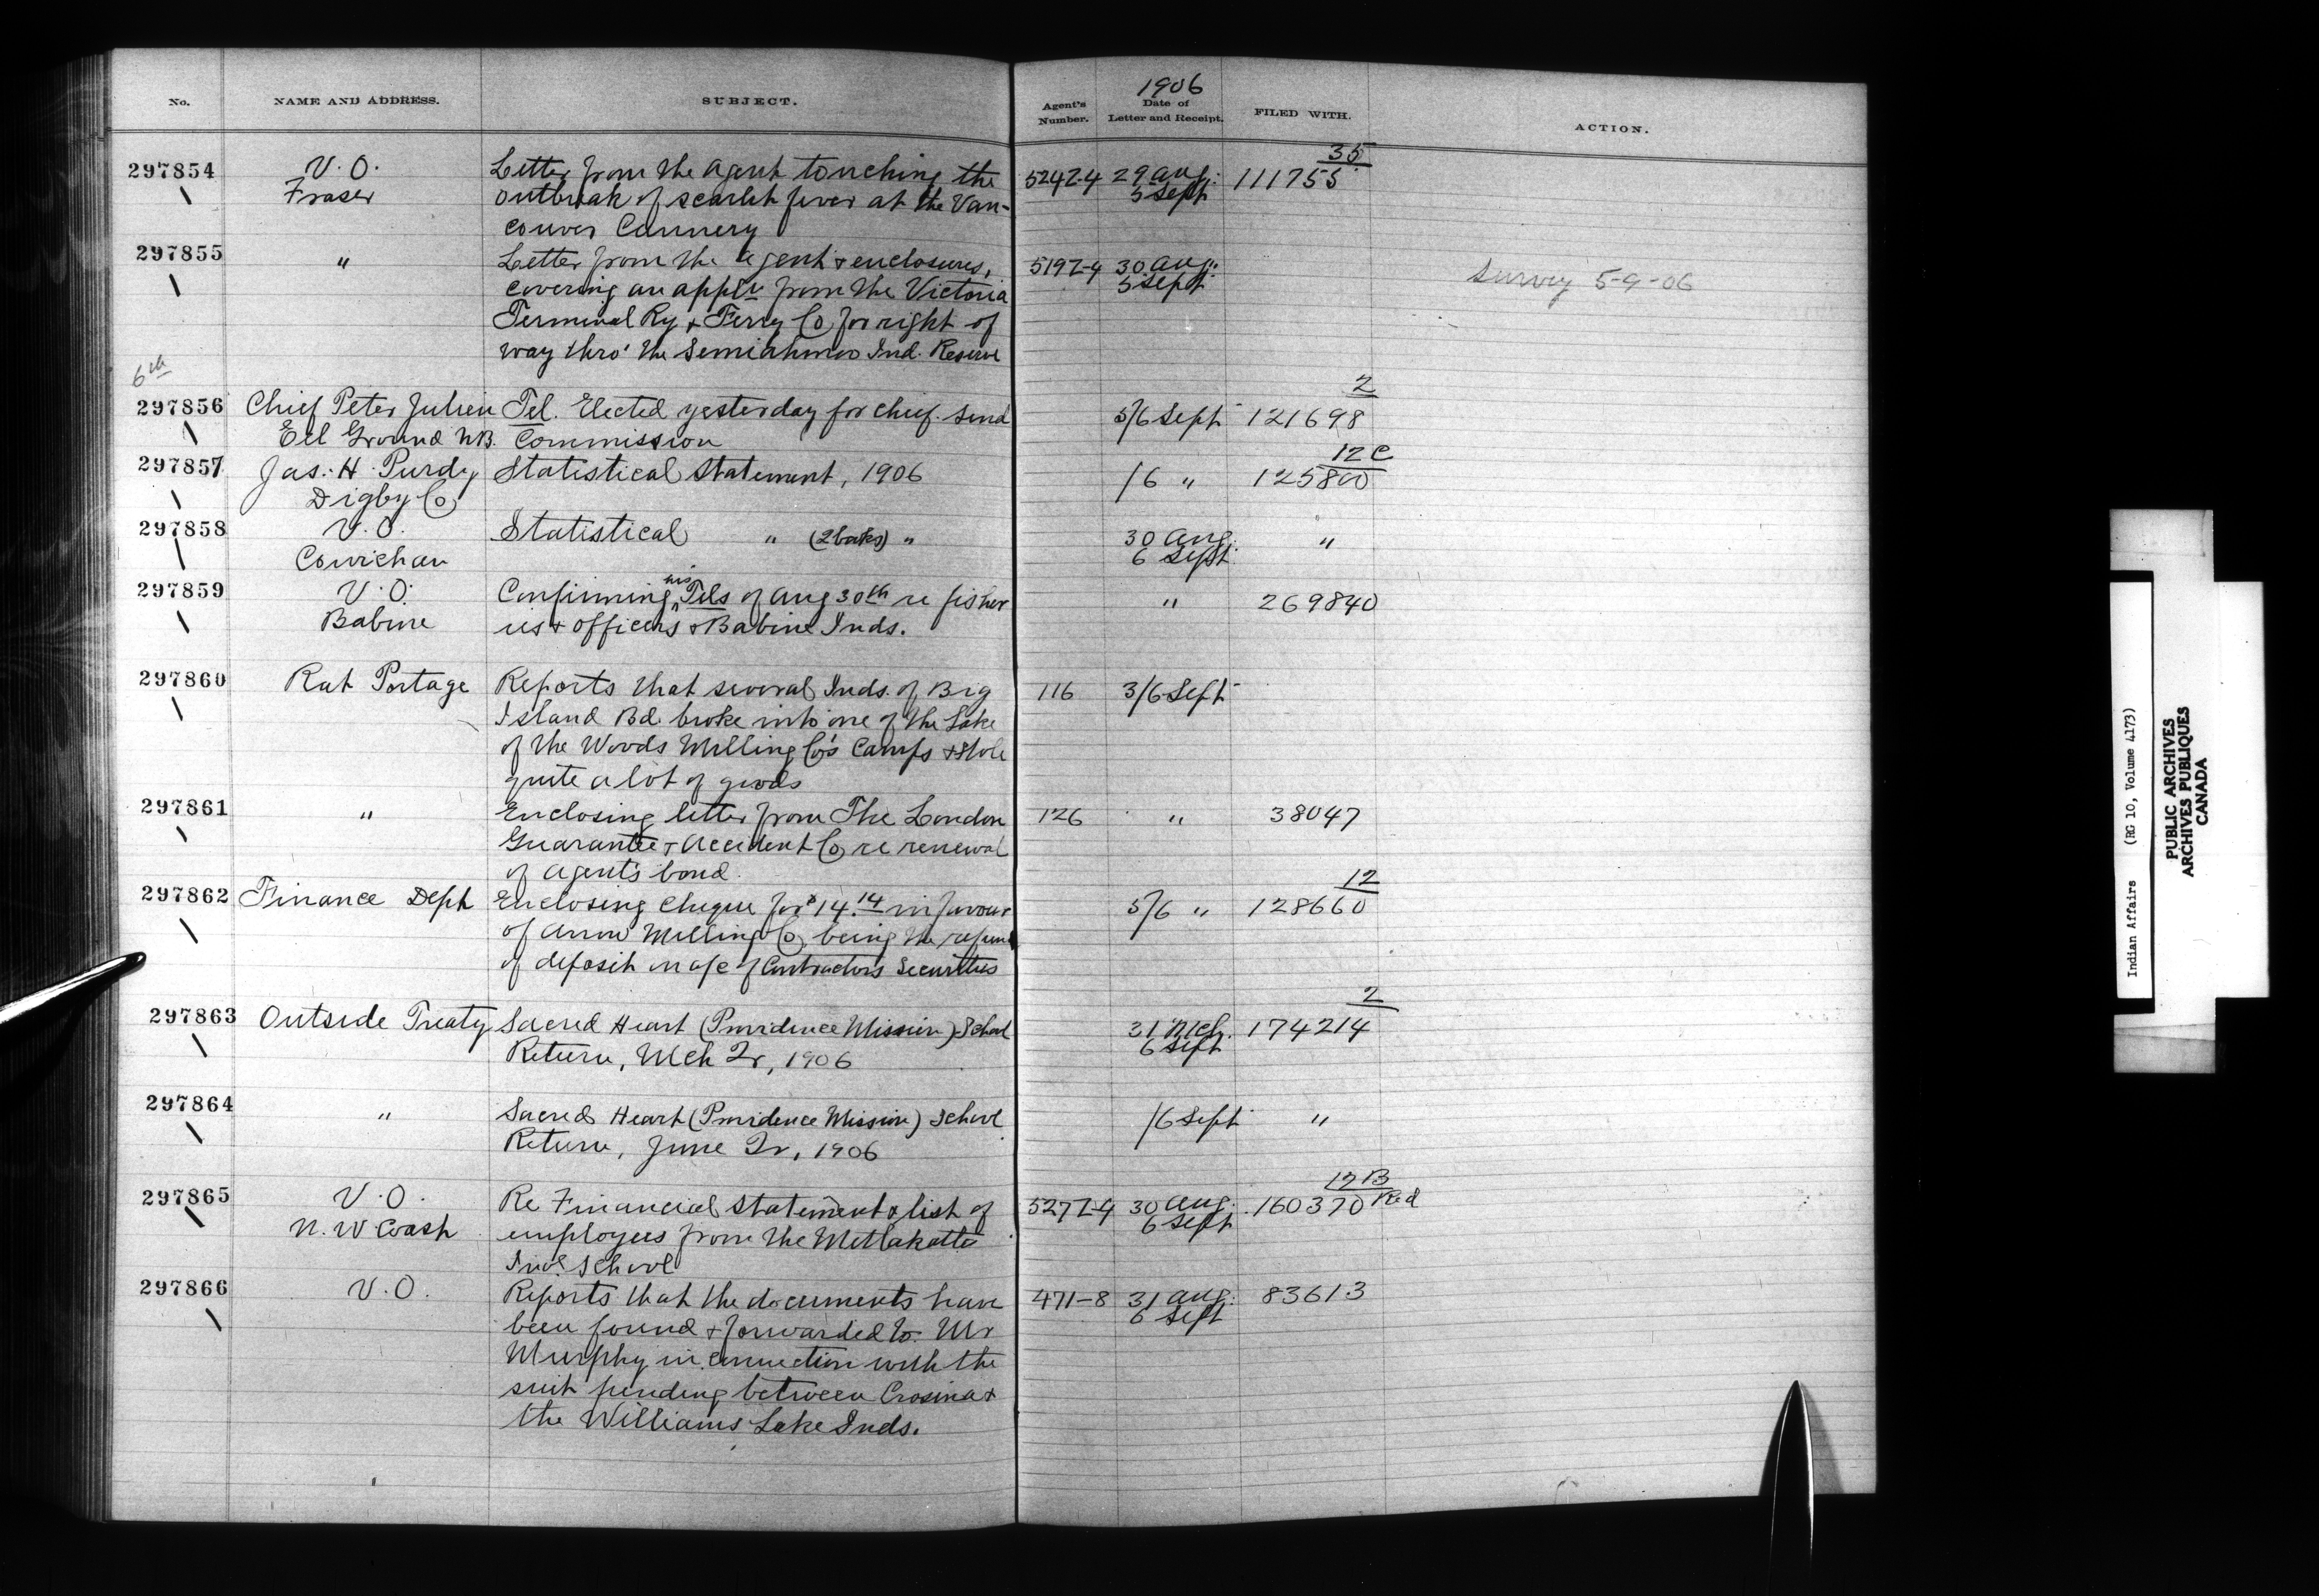 1906
No. NAME AND ADDRESS. SUBJECT. Agent's Number. Date of Letter and Receipt. FILED WITH. ACTION.
35
297854 V. O. Letter from the Agent touching the 5242-4 29 Aug. 111755
Fraser outbreak of scarlet fever at the Van- 5 Sept
couver Cannery
297855 " Letter from the Agent & enclosures, 5192-4 30 Aug. Survey 5-9-06
covering an appln from the Victoria 5 Sept
Terminal Ry & Ferry Co for right of
way thro' the Semiahmoo Ind. Reserve
6th
2
297856 Chief Peter Julien Tel. Elected yesterday for chief. Send 5/6 Sept 121698
Eel Ground N.B. Commission
12 C
297857 Jas. H. Purdy Statistical Statement, 1906 /6 " 125800
Digby Co
297858 V. O. Statistical " (2 books) " 30 Aug. "
Cowichan 6 Sept.
his
297859 V. O. Confirming Tels of Aug 30th re fisher " 269840
Babine ies & officers & Babine Inds.
297860 Rat Portage Reports that several Inds. of Big 116 3/6 Sept
Island Bd. broke into one of the Lake
of the Woods Milling Co's Camps & stole
quite a lot of goods
297861 " Enclosing letter from The London 126 " 38047
Guarantee & Accident Co re renewal
of Agent's bond.
12
297862 Finance Dept Enclosing cheque for $14.14 in favour 5/6 " 128660
of Arrow Milling Co, being the refund
of deposit on a/c of Contractors Securities
2
297863 Outside Treaty Sacred Heart (Providence Mission) School 31 Mch. 174214
Return, Mch Qr, 1906 6 Sept
297864 " Sacred Heart (Providence Mission) School /6 Sept "
Return, June Qr, 1906
12 B
297865 V. O. Re Financial Statement & list of 5272-4 30 Aug. 160370 Red
N. W Coast employees from the Metlakatla 6 Sept
Indl School
297866 V. O. Reports that the documents have 471-8 31 Aug. 83613
been found & forwarded to Mr 6 Sept
Murphy in connection with the
suit pending between Crosina &
the Williams Lake Inds.
Indian Affairs (RG 10, Volume 4173)
PUBLIC ARCHIVES
ARCHIVES PUBLIQUES
CANADA